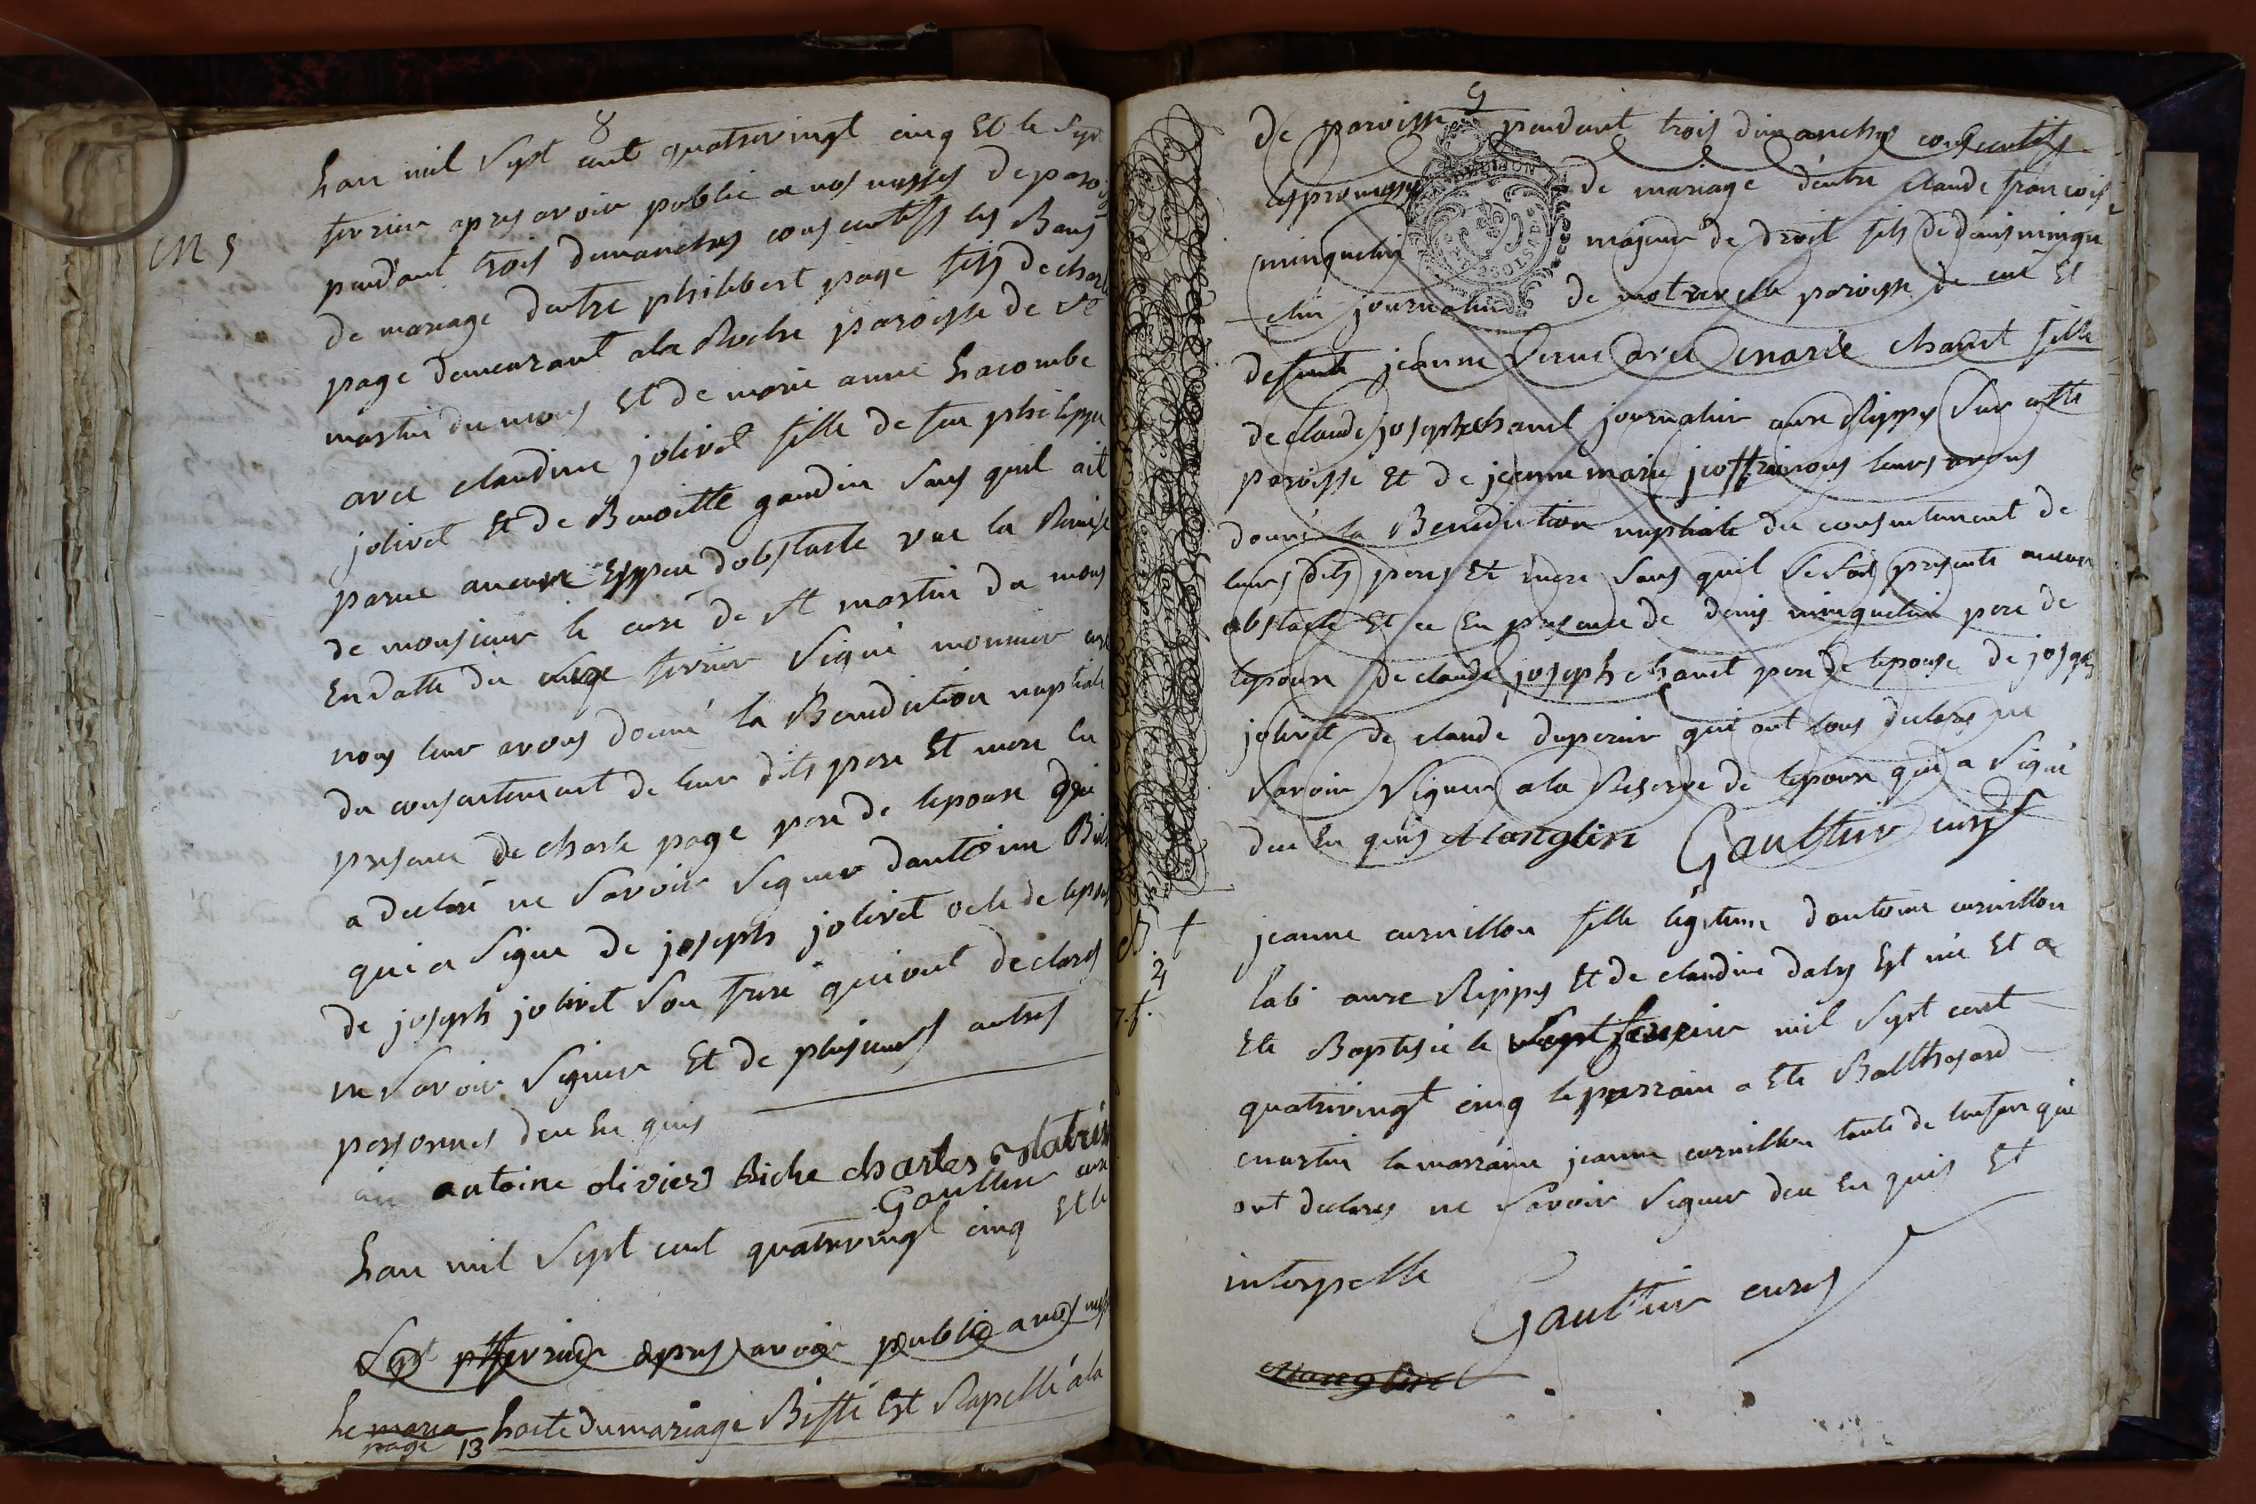 8
Lan mil Sept cent quatrevingt cinq Et le Sept
fevrier apres avoir publie a nos messes de paroisse
M 5
pendant trois dimanches consecutifs les Bans
de mariage dentre philibert page fils de charle
page demeurant ala Roche paroisse de St
martin du mons Et de marie anne Lacombe
avec claudine jolivet fille de feu philippe
jolivet Et de Benoitte gaudin Sans quil ait
parue aucune Espece dobstacle vue la Remise
de monsieur le curé de St martin du mons
En datte du fevrier Signé monnier curé
nous leur avons donné la Benediction nuptiale
du consentement de leur dits pere Et mere En
presence de charle page pere de lepoux qui
a declaré ne Savoir Signer dantoine
qui a Signe de joseph jolivet de
de joseph jolivet Son frere qui ont declarés
ne Savoir Signer Et de plusieurs autres
personnes deu En quis
antoine olivier Biche charles
Gaultier curé
Lan mil Sept cent quatrevingt cinq Et le
Sept fevrier apres avoir publié a nos
Le maria Lacte du mariage Biffé Est Rapellé ala
page 13
9
de paroisse pendant trois dimanches consecutifs
les promesses de mariage dentre claude françois
minquelin majeur de droit fils de denis minque
-elin journalier de paroisse de Et
defunte jeanne avec marie chanel fille
de claude joseph chanel journalier aux Rippes Sur cette
paroisse Et de jeanne marie nous leurs avons
donné la Benediction nuptiale du consentement de
leurs dits peres Et mere Sans quil Se Soit presenté aucun
obstacle Et ce En presence de denis minquelin pere de
lepoux de claude joseph chanel pere de lepouse de joseph
jolivet de claude duperier qui ont tous declarés ne
Savoir Signer ala Reserve de lepoux qui a Signé
deu En quis Manglin Gaultier curé
B +
2
7. f.
jeanne curnillon fille legitime dantoine curnillon
lab. aux Rippes Et de claudine dalis Est née Et a
Ete Baptisée le Sept fevrier mil Sept cent
quatrevingt cinq le parrain a Ete Balthasard
martin la marraine jeanne curnillon tante de lenfan qui
ont declares ne Savoir Signer deu En quis Et
interpelle
Gaultier curé
Manglin